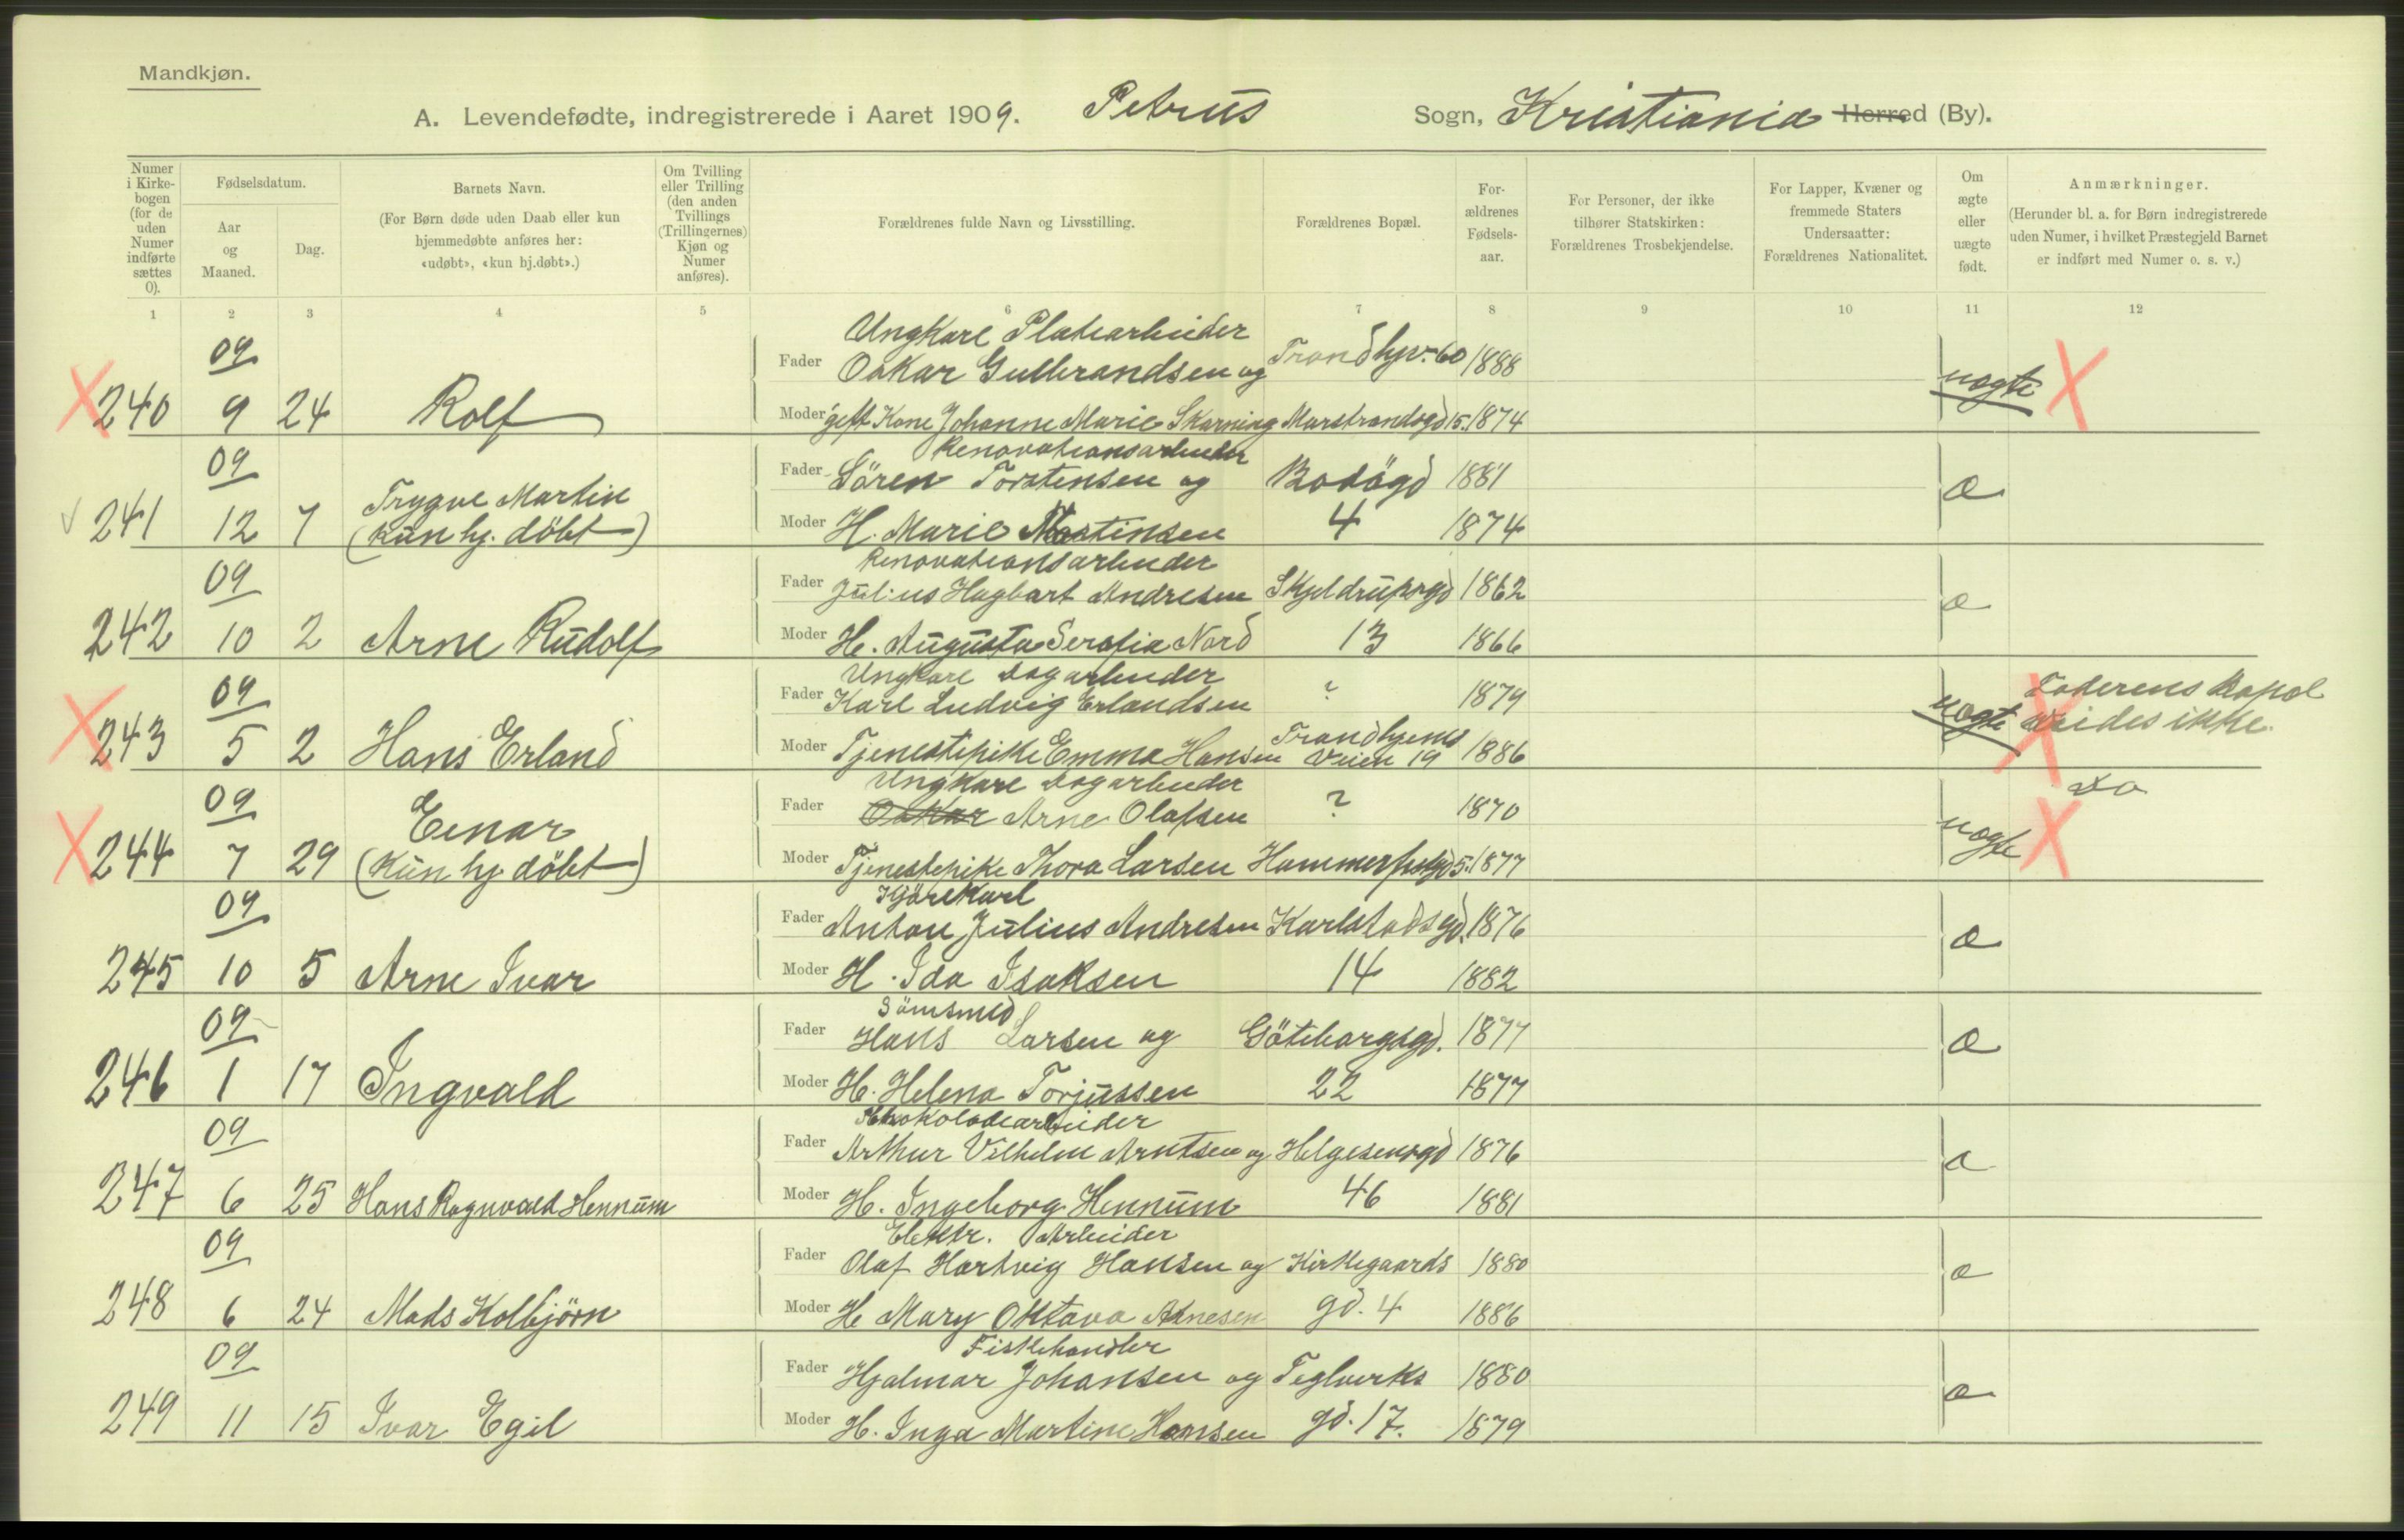 Mandkjøn.
A. Levendefødte, indregistrerede i Aaret 1909. Petrus Sogn, Kristiania Herred (By).
Numer i Kirke-bogen (for de uden Numer indførte sættes 0).
Fødselsdatum.
Aar og Maaned.
Dag.
Barnets Navn.
(For Børn døde uden Daab eller kun hjemmedøbte anføres her: «udøbt», «kun hj.døbt».)
Om Tvilling eller Trilling (den anden Tvillings (Trillingernes) Kjøn og Numer anføres).
Forældrenes fulde Navn og Livsstilling.
Forældrenes Bopæl.
For-ældrenes Fødsels-aar.
For Personer, der ikke tilhører Statskirken: Forældrenes Trosbekjendelse.
For Lapper, Kvæner og fremmede Staters Undersaatter: Forældrenes Nationalitet.
Om ægte eller uægte født.
Anmærkninger.
(Herunder bl. a. for Børn indregistrerede uden Numer, i hvilket Præstegjeld Barnet er indført med Numer o. s. v.)
1 2 3 4 5 6 7 8 9 10 11 12
09 Ungkarl Platearbeider
Fader Oskar Gulbrandsen og Trondhjv. 60 1888
X 240 9 24 Rolf Moder gift Kone Johanne Marie Skarning Marstrandsgd 15. 1874 uægte X
09 Renovationsarbeider
Fader Sören Torstensen og Bodögd 1881
241 12 7 Trygve Martin (kun hj. döbt) Moder H. Marie Martinsen 4 1874 æ
09 Renovationsarbeider
Fader Julius Hagbart Andresen Skjeldrupsgd 1862
242 10 2 Arne Rudolf Moder H. Augusta Serafia Nord 13 1866 æ
09 Ungkarl Dagarbeider
Fader Karl Ludvig Erlandsen ? 1879
X 243 5 2 Hans Erland Moder Tjenestepike Emma Hansen Trondhjems Veien 19 1886 uægte X Faderens Bopæl vides ikke.
09 Ungkarl Dagarbeider
Fader Oskar Arne Olafsen ? 1870 Do
X 244 7 29 Einar (kun hj. döbt) Moder Tjenestepike Thora Larsen Hammerfestgd 5. 1877 uægte X
09 Kjörekarl
Fader Anton Julius Andresen Karlstadsgd. 1876
245 10 5 Arne Ivar Moder H. Ida Isaksen 14 1882 æ
09 Sömsmed
Fader Hans Larsen og Göteborgsgd. 1877
246 1 17 Ingvald Moder H. Helena Torjussen 22 1877 æ
09 Chokoladearbeider
Fader Arthur Vilhelm Arntsen og Helgesensgd 1876
247 6 25 Hans Ragnvald Hennum Moder H. Ingeborg Hennum 46 1881 æ
09 Elektr. Arbeider
Fader Olaf Hartvig Hansen og Kirkegaards 1880
248 6 24 Mads Kolbjörn Moder H. Mary Oktava Arnesen gd. 4 1886 æ
09 Fiskehandler
Fader Hjalmar Johansen og Teglverks 1880
249 11 15 Ivar Egil Moder H. Inga Martine Hansen gd. 17. 1879 æ